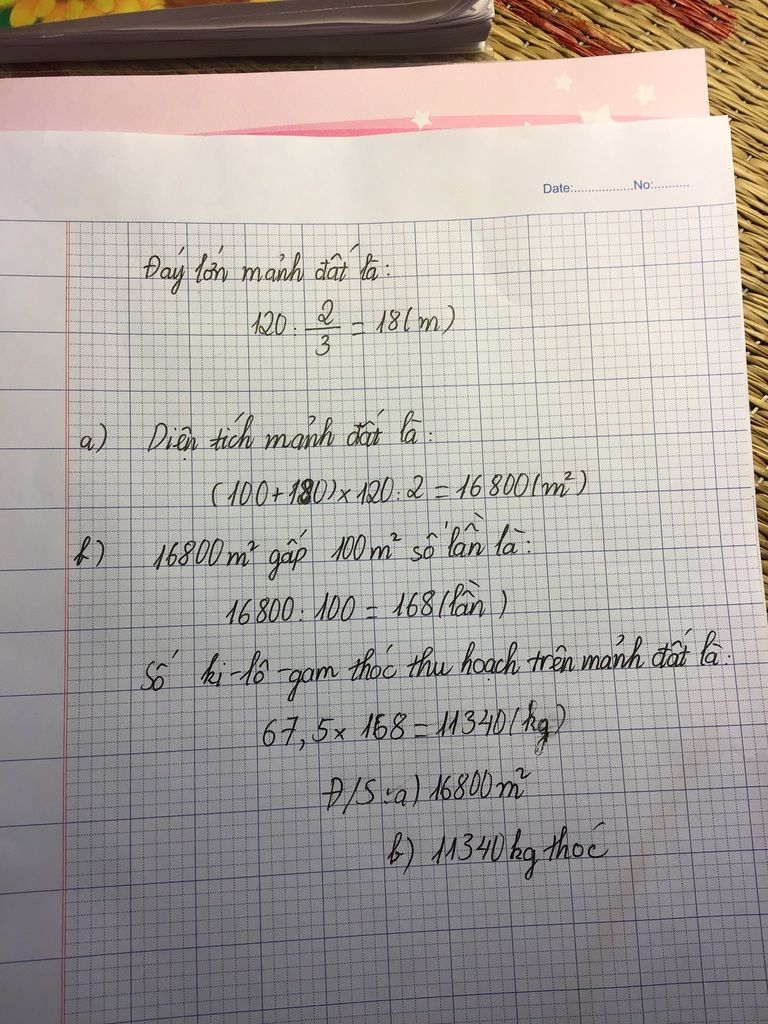 Date:.................No:..........
Đáy lớn mảnh đất là:
120 : 2/3 = 18 (m)
a) Diện tích mảnh đất là:
(100 + 180) × 120 : 2 = 16800 (m²)
b) 16800 m² gấp 100 m² số lần là:
16800 : 100 = 168 (lần)
Số ki-lô-gam thóc thu hoach trên mảnh đất là:
67,5 × 168 = 11340 (kg)
Đ/S: a) 16800 m²
b) 11340 kg thóc